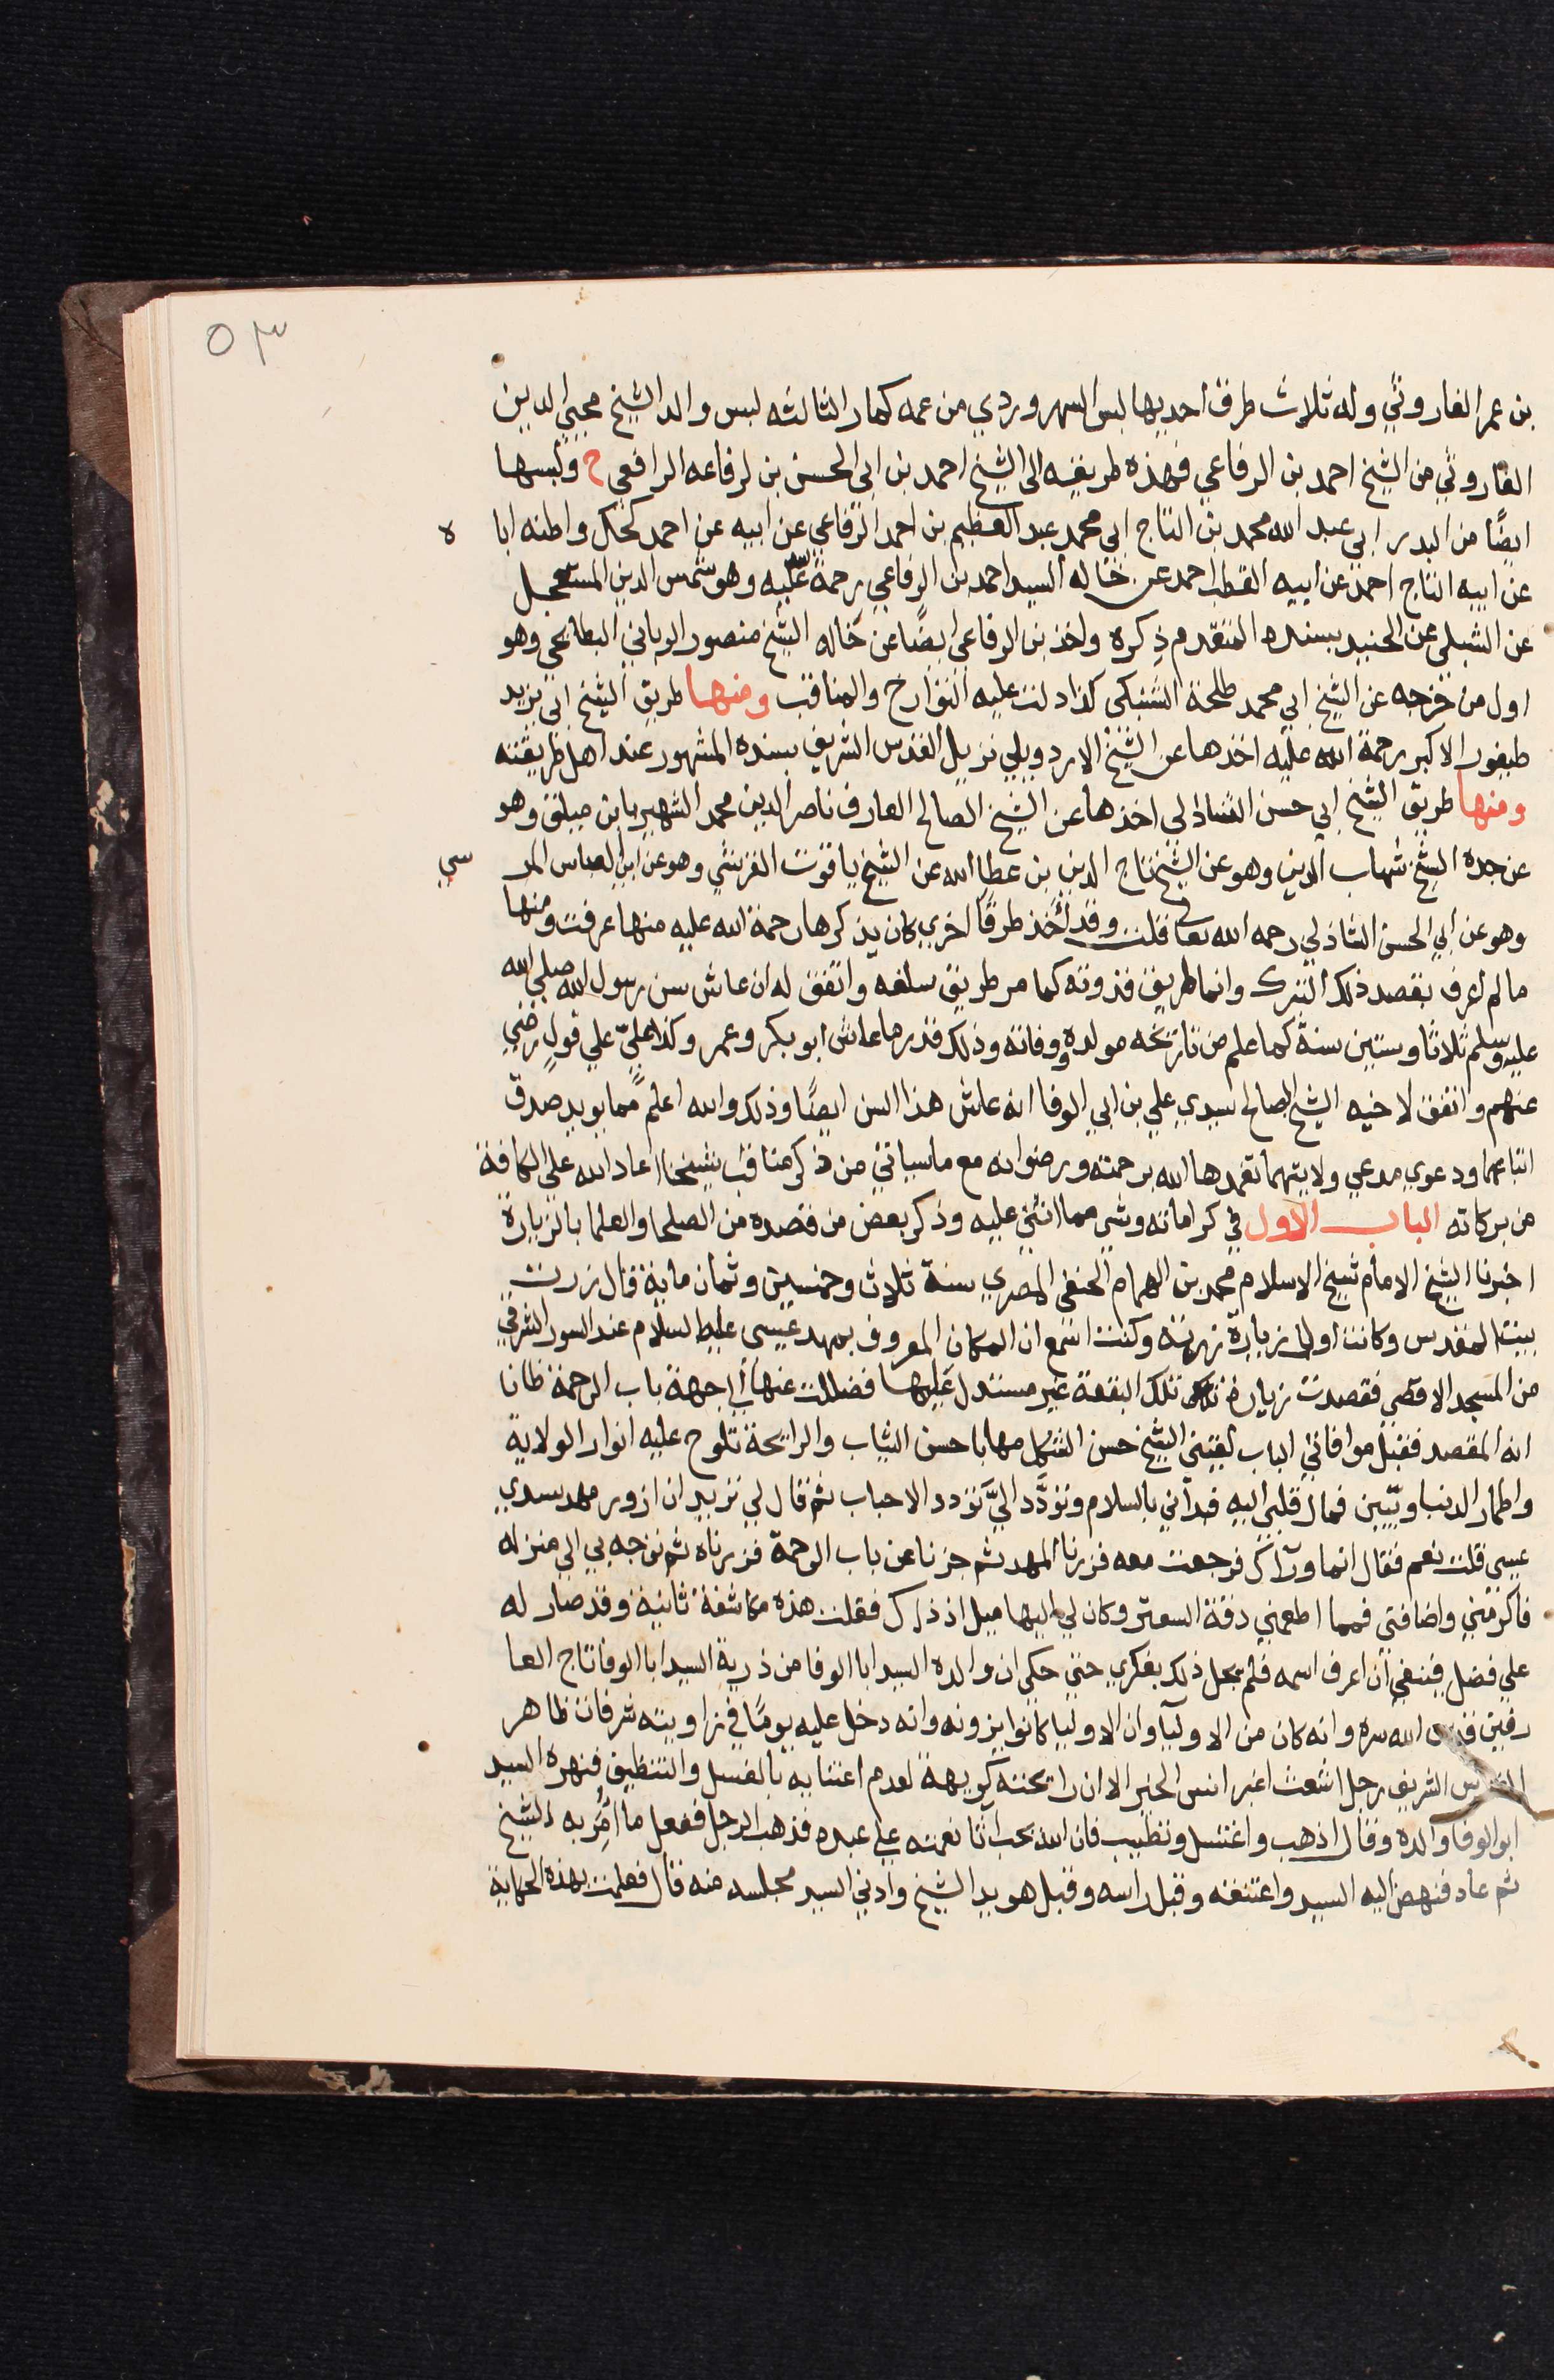 ٥٣
بن عمر الفاروثي وله ثلاث طرق احديها لبس السهروردي من عمه كما مر الثالثه لبس والد الشيخ محيي الدين
الفاروثي من الشيخ احمد بن الرفاعي فهذه طريقته الى الشيخ احمد بن ابي الحسن بن لرفاعه الرافعي ح ولبسها
ايضًا من البدر ابي عبد الله محمد بن التاج ابي محمد عبد العظيم بن احمد الرفاعي عن ابيه عن احمد كخكل واظنه ابا ه
عن ابيه التاج احمد عن ابيه القطب احمد عن خاله السيد احمد بن الرفاعي رحمة الله عليه وهو شمس الدين المستعجل
عن الشبلي عن الجنيد بسنده المتقدم ذكره واخذ بن الرفاعي ايضًا عن خاله الشيخ منصور الرباني البطايحي وهو
اول من خرجه عن الشيخ ابي محمد طلحة الشنبكي كذا دلت عليه التوارخ والمناقب ومنها طريق الشيخ ابي يزيد
طيفور الاكبر رحمة الله عليه اخذها عن الشيخ الاردوبيلي نزيل القدس الشريف بسنده المشهور عند اهل طريقته
ومنها طريق الشيخ ابي حسن الشاذلي اخذها عن الشيخ الصالح العارف ناصر الدين محمد الشهير بابن ميلق وهو
عن جده الشيخ شهاب الدين وهو عن الشيخ تاج الدين بن عطا الله عن الشيخ ياقوت القرشي وهو عن ابي العباس المر سي
وهو عن ابي الحسن الشاذلي رحمه الله تعا قلت وقد أخذ طرقًا اخري كان يذكرها رحمة الله عليه منها عرفت ومنها
ما لم اعرف بقصد ذلك التبرك وانما طريق قدوته كما مر طريق سلفه واتفق له ان عاش سن رسول الله صلي الله
عليه وسلم ثلاثا وستين سنة كما علم من تاريخه مولده ووفاته وذلك قدر ما عاش ابو بكر وعمر وكذا عليّ علي قول رضي
عنهم واتفق لاخيه الشيخ الصالح سيدي علي بن ابي الوفا انه عاش هذا السن ايضًا وذلك والله اعلم مما يويد صدق
اتباعهما ودعوي مدعي ولايتهما تغمدها الله برحمته ورضوانه مع ما سياتي من ذكر مناقب شيخنا اعاد الله علي الكافة
من بركاته الباب الاول في كراماته وشي مما اثني عليه وذكر بعض من قصده من الصلحا والعلما بالزيارة
اخبرنا الشيخ الامام شيخ الاسلام محمد بن الهمام الحنفي المصري سنة ثلاث وخمسين وثمان ماية قال زرت
بيت المقدس وكانت اولي زيارة زرته وكنت اسمع ان المكان المعروف بمهد عيسي عليه السلام عند السور الشرقي
من المسجد الاقصي فقصدت زيارة تلك البقعة غير مستدل عليها فضللت عنها الي جهة باب الرحمة ظانا
انه المقصد فقبل موافاتي الباب لقيني الشيخ حسن الشكل مهابا حسن الثياب والرايحة تلوح عليه انوار الولاية
واطمار الدنيا ويتبين فمال قلبي اليه فبدأني بالسلام وتودَّد اليَّ تودد الاحباب ثم قال لي تزيد ان ازور مهد سيدي
عيسي قلت نعم فقال انما ورآك فرجعت معه فزرنا المهد ثم جزنا عن باب الرحمة فزرناه ثم توجه بي الي منزله
فاكرمني واضافتي فمما اطعمني دقة السعتر وكان لي اليها ميل اذ ذاك فقلت هذه مكاشفة ثانية وقد صار له
علي فضل فينبغي ان اعرف اسمه فلم يحل ذلك بفكري حتي حكي ان والده السيد ابا الوفا من ذرية السيد ابا الوفا تاج العا
رفين قدس الله سره وانه كان من الاوليآ وان الاوليا كانوا يزونه وانه دخل عليه يومًا في زاويته شرفات ظاهر
القدس الشريف رجل اشعث اغبر انس الخير الا ان رايحته كريهة لعدم اعتنايه بالغسل والتنظيف فنهره السيد
ابو الوفا والده وقال اذهب واغتسل وتطيب فان الله يحب اثا نعمته علي عبده فذهب الرجل ففعل ما امُرِ به الشيخ
ثم عاد فنهض اليه السيد واعتنقه وقبل راسه وقبل هو يد الشيخ وادني السيد مجلسه منه قال فعلمت بهذه الحكاية